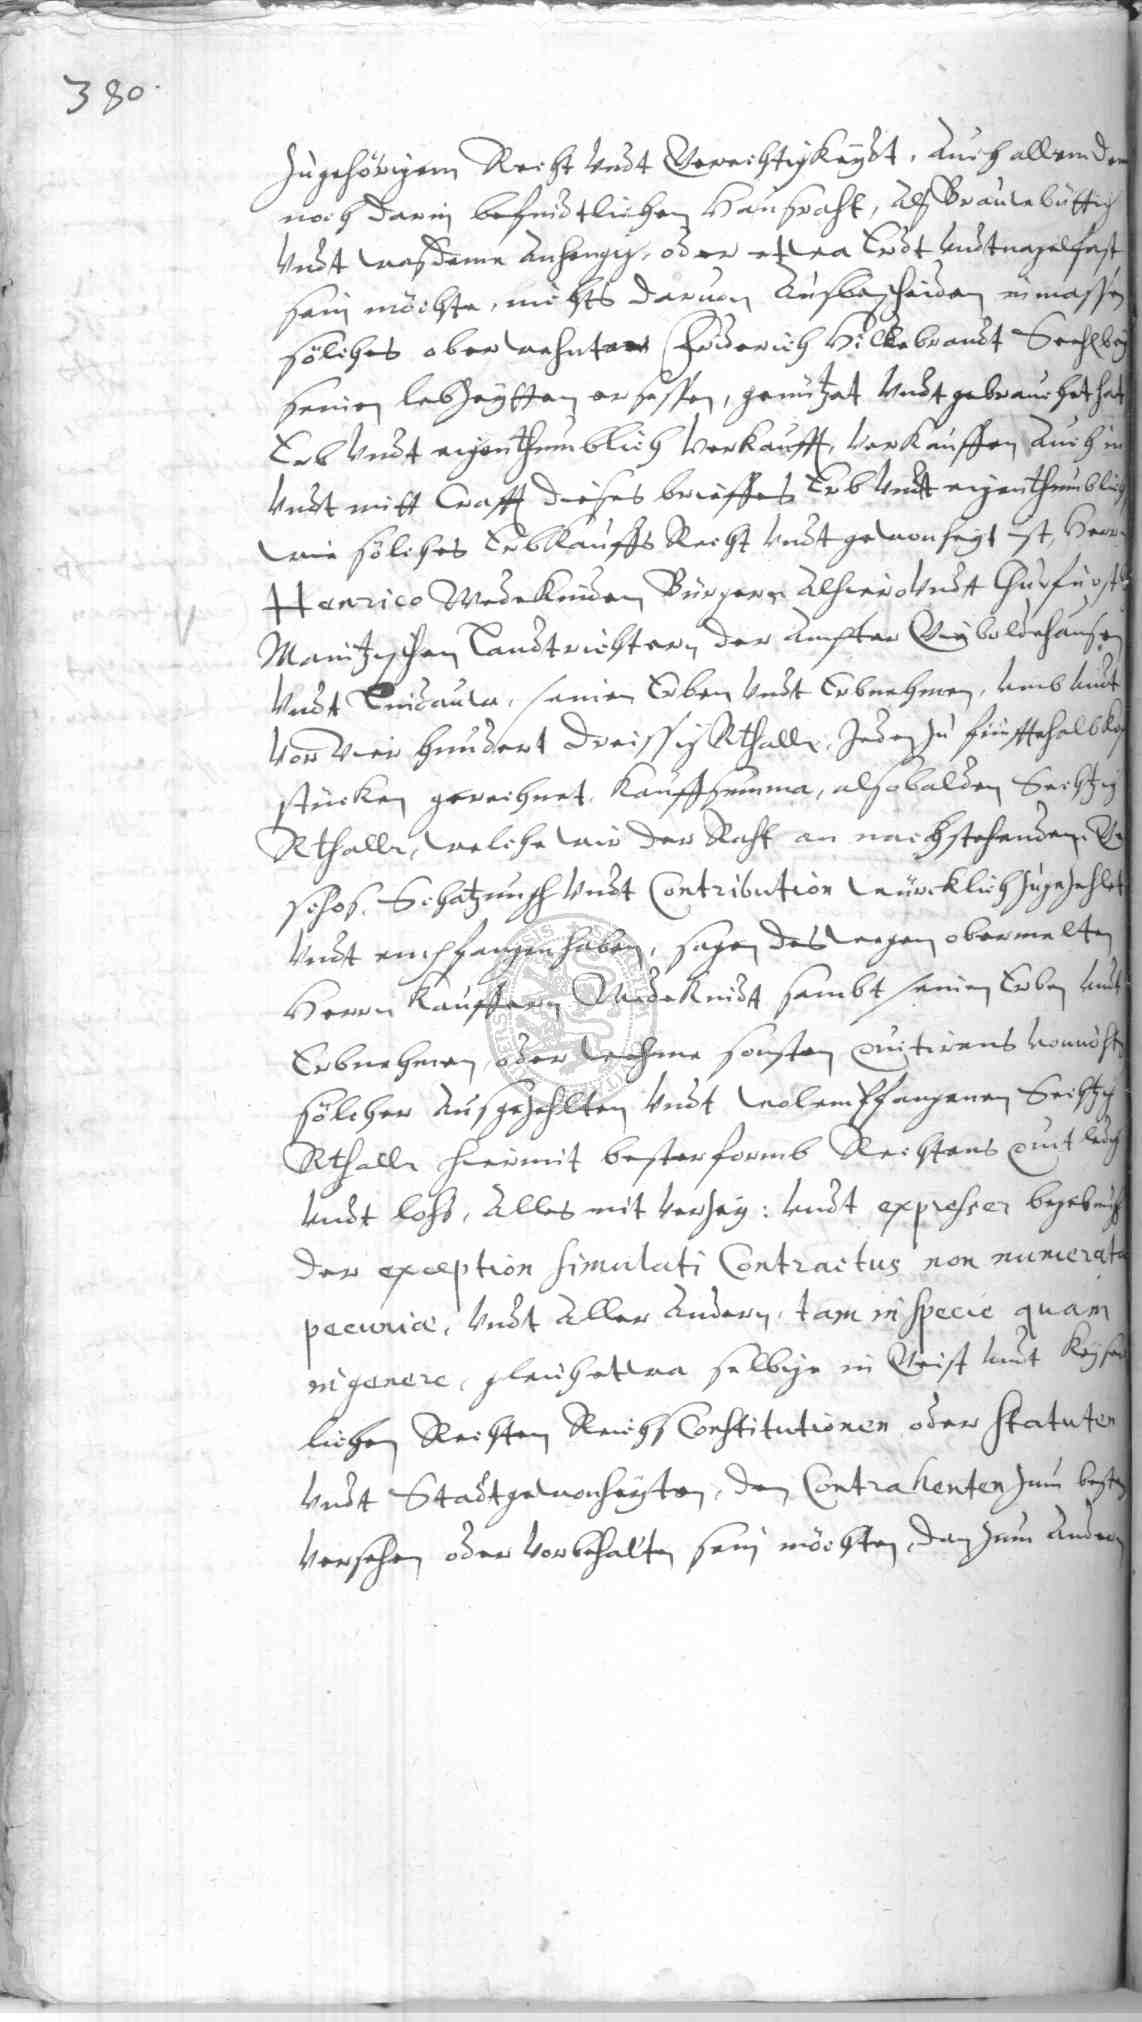 380.
Zugehörigem Recht Undt Gerechtigkeydt, Auch allem dem
noch darin befindtlichen Haußraht, Alß Braue büttig
Undt waß deme Anhengig, oder etwa Erdt Undt nagelfest
sein möchte, nichts daruon Außbescheiden inmassen
sölches oberwehnter Friderich Hillebrandt Seehl bey
seinen lebzeytten ersessen, genützet Undt gebrauchet hat
Erb Undt eigenthumblich Verkaufft, Verkauffen Auch in
Undt mitt Crafft dieses brieffes Erb Undt eigenthumblich
wie sölches Erbkauffs Recht Undt gewonheyt ist, Herrn
Henrico Wedekinden Bürgern Alhiero Undt Churfürstl
Maintzischen Landtrichtern der Ampter Gieboldehausen
Undt Lindauw, seinen Erben Undt Erbnehmen, Umb Undt
Vor Vier hundert dreissig Rthallr. Jeden zu fünfftehalb kop
stücken gerechnet, Kauffsumma, alsobalden Sechtzig
Rthallr, welche wir der Raht an nachstehendem Ge
schos, Schatzungh Undt Contribution würcklich zugezehlet
Undt empfangen haben, sagen deswegen obermelten
Herrn Kauffern Wedekindt sambt seinen Erben Undt
Erbnehmen, oder wehme sonsten quitirens vonnöhten
sölcher Außgezehlten Undt wolempffangenen Sechtzig
Rthallr hiermit bester formb Rechtens quit ledig
Undt loß, Alles mit Verzig: Undt expresser begebungh
der exception simulati Contractus non numeratæ
pecuniæ, Undt Aller Andern, tam in specie quam
in genere, gleich etwa selbige in Geist Undt Keyser
lichen Rechten Reichs Constitutionen oder Statuten
Undt Stadtgewonheyten, den Contrahenten zum besten
Versehen oder Vorbehalten sein möchten, dan zum Andern